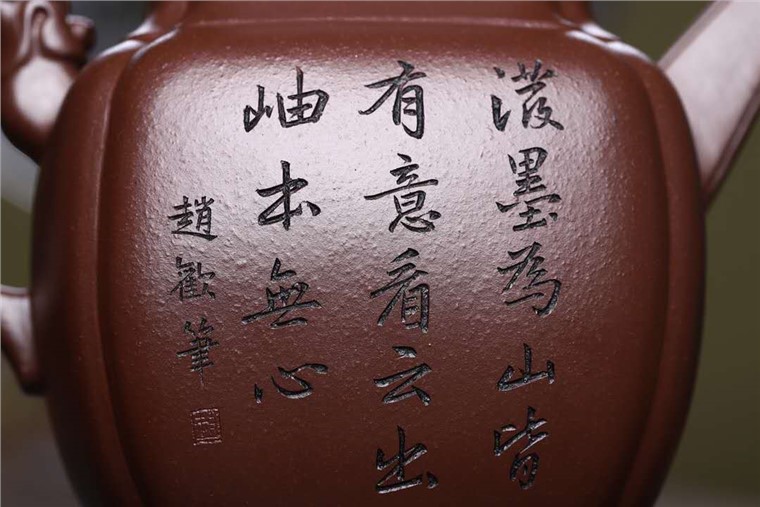 潑墨為山皆
有意看云出
岫本無心
趙歡筆